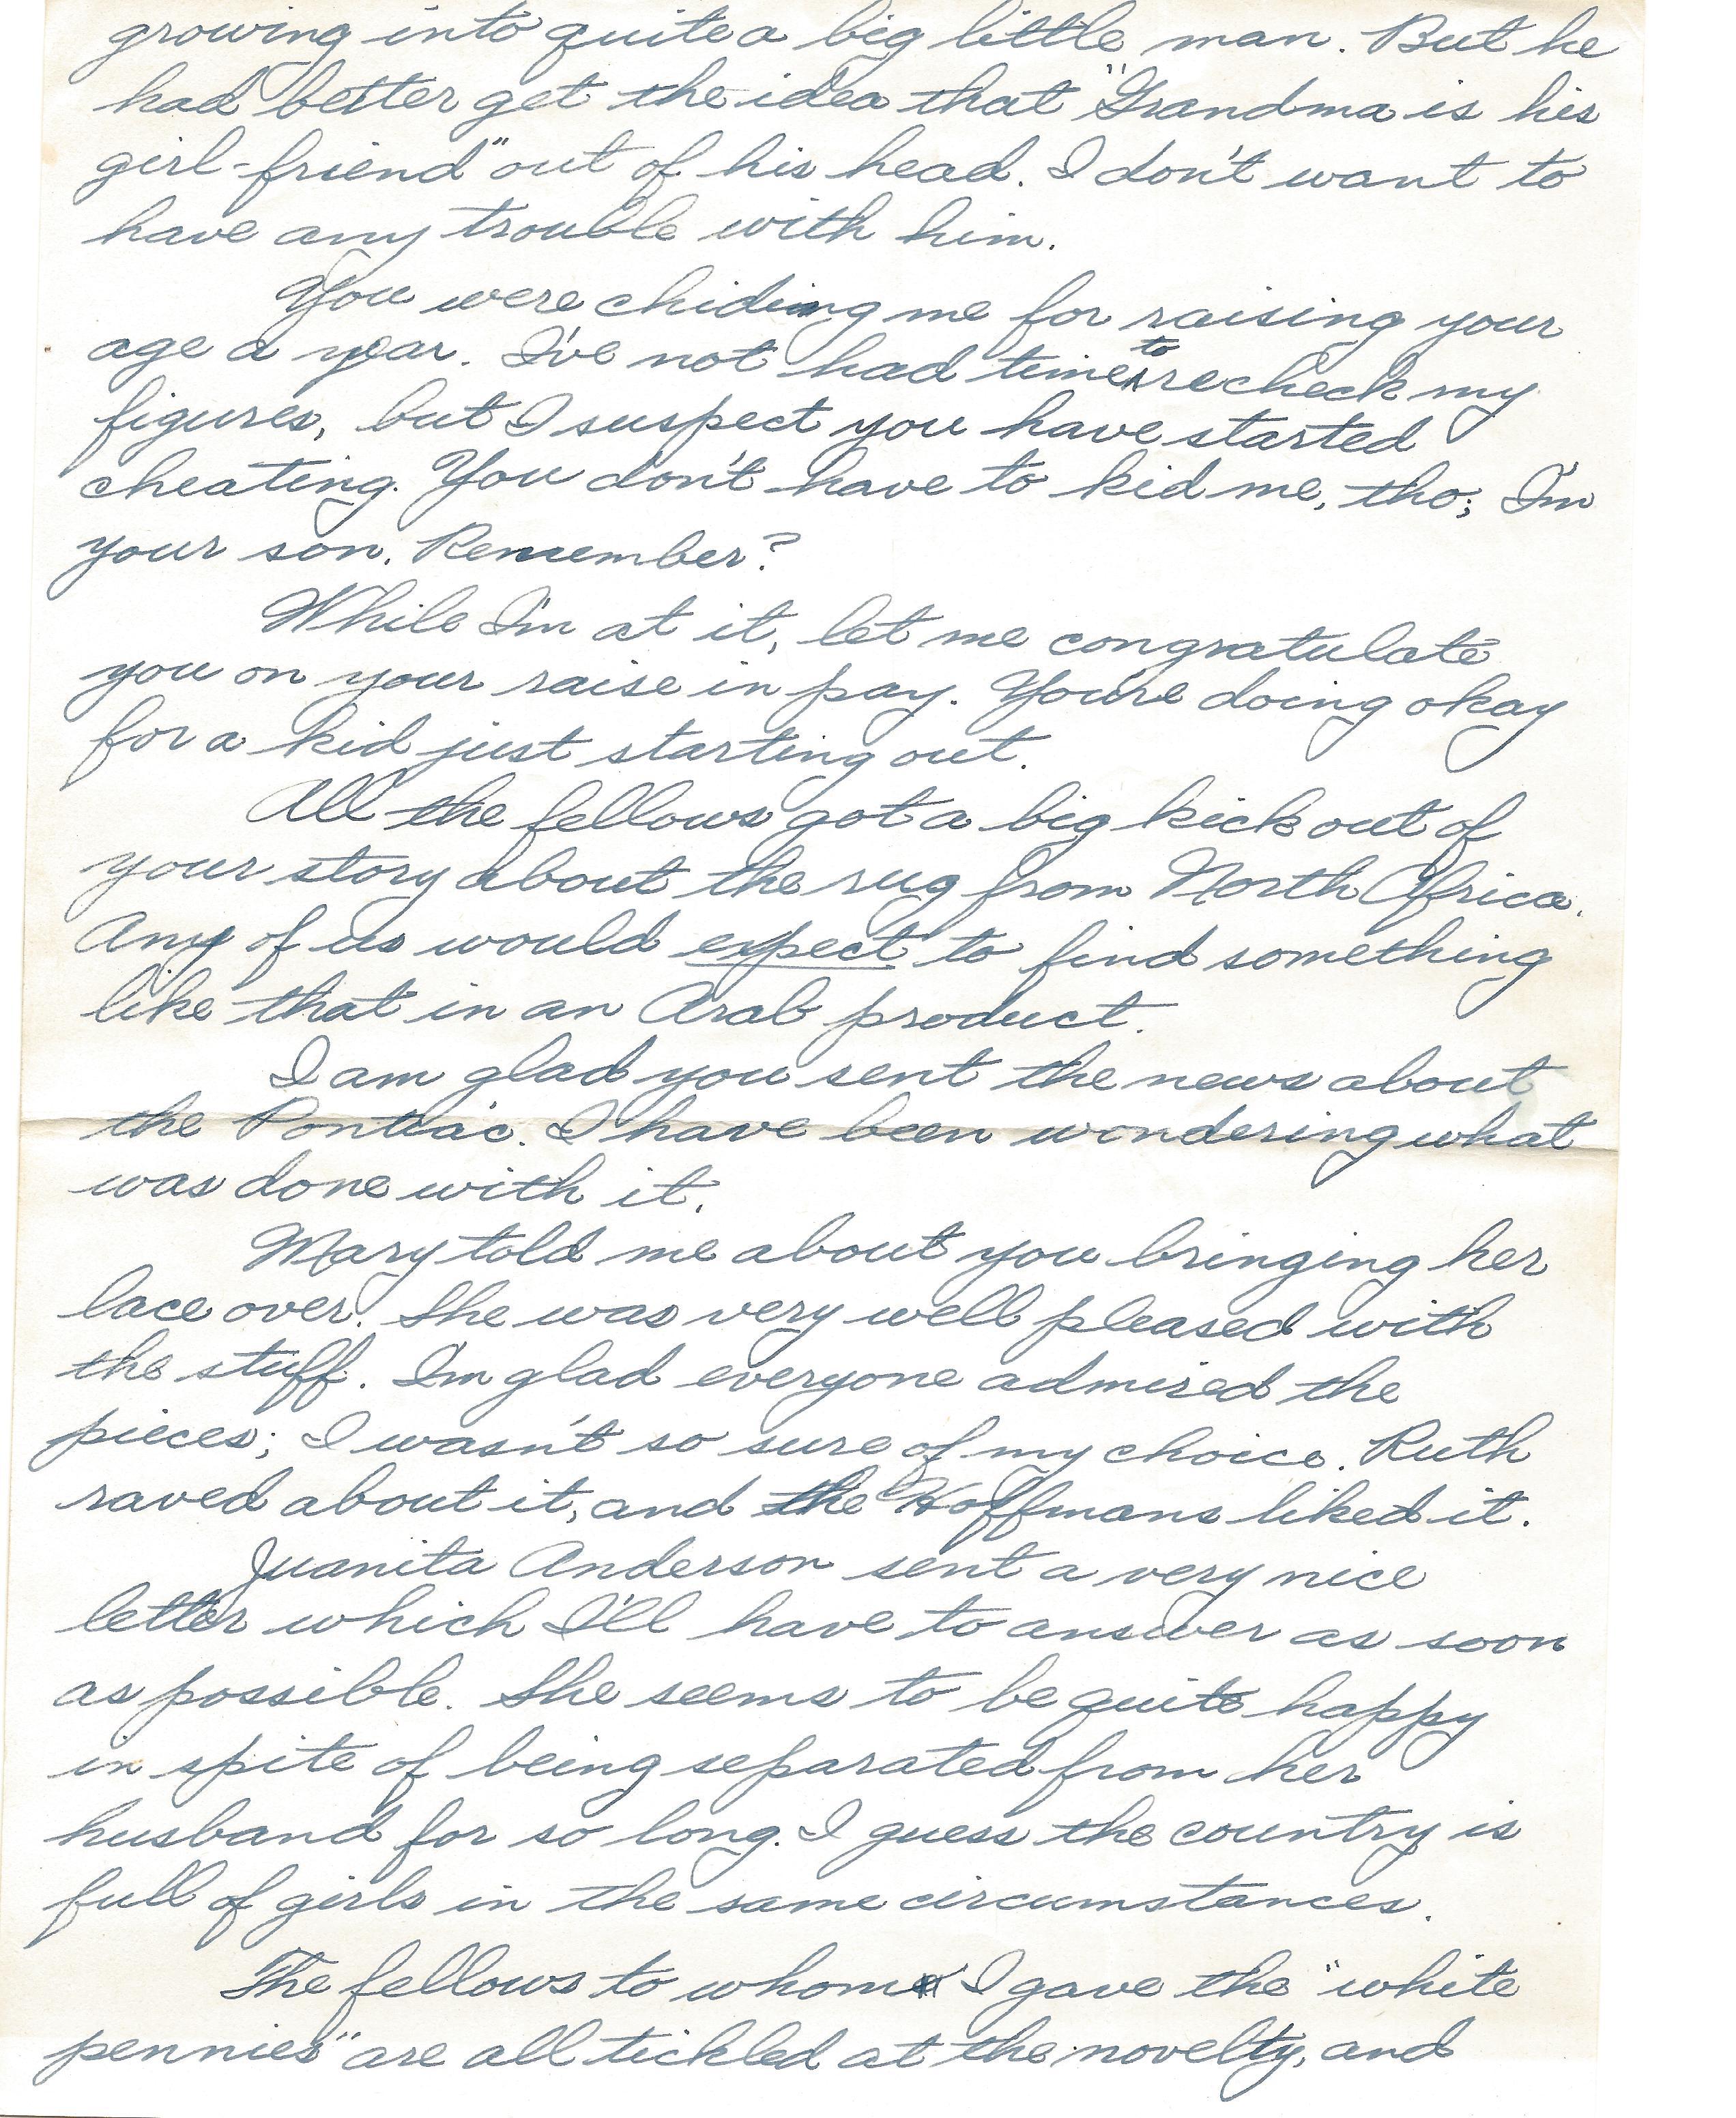 growing into quite a big little man. But he
had better get the idea that "Grandma is his
girl-friend" out of his head. I don't want to
have any trouble with him.
You were chiding me for raising your
age a year. I've not had time to recheck my
figures, but I suspect you have started
cheating. You don't have to kid me, tho; I'm
your son. Remember?
While I'm at it, let me congratulate
you on your raise in pay. You're doing okay
for a kid just starting out.
All the fellows got a big kick out of
your story about the rug from North Africa.
Any of us would expect to find something
like that in an Arab product.
I am glad you sent the news about
the Pontiac. I have been wondering what
was done with it.
Mary told me about you bringing her
lace over. She was very well pleased with
the stuff. I'm glad everyone admired the
pieces; I wasn't so sure of my choice. Ruth
raved about it, and the Hoffmans liked it.
Juanita Anderson sent a very nice
letter which I'll have to answer as soon
as possible. She seems to be quite happy
in spite of being separated from her
husband for so long. I guess the country is
full of girls in the same circumstances.
The fellows to whom I gave the "white
pennies" are all tickled at the novelty, and